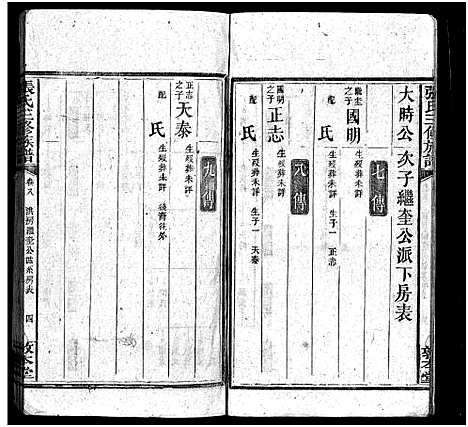 張氏三修族譜
大時公次子繼奎公派下房表
七傳
繼奎之子 國明 生歿葬未詳
配 氏 生歿葬未詳 生子一 正志
八傳
國明之子 正志 生歿葬未詳
配 氏 生歿葬未詳 生子一 天泰
敦本堂
九傳
正志之子 天泰 生歿葬未詳
配 氏 生歿葬未詳 後裔徃外
張氏三修族譜
卷八
洪房繼奎公派系房表
四
敦本堂